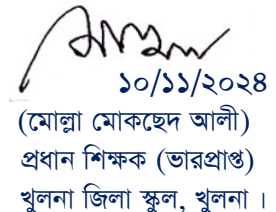 ১০/১১/২০২৪
(মোল্লা মোকছেদ আলী)
প্রধান শিক্ষক (ভারপ্রাপ্ত)
খুলনা জিলা স্কুল, খুলনা ।